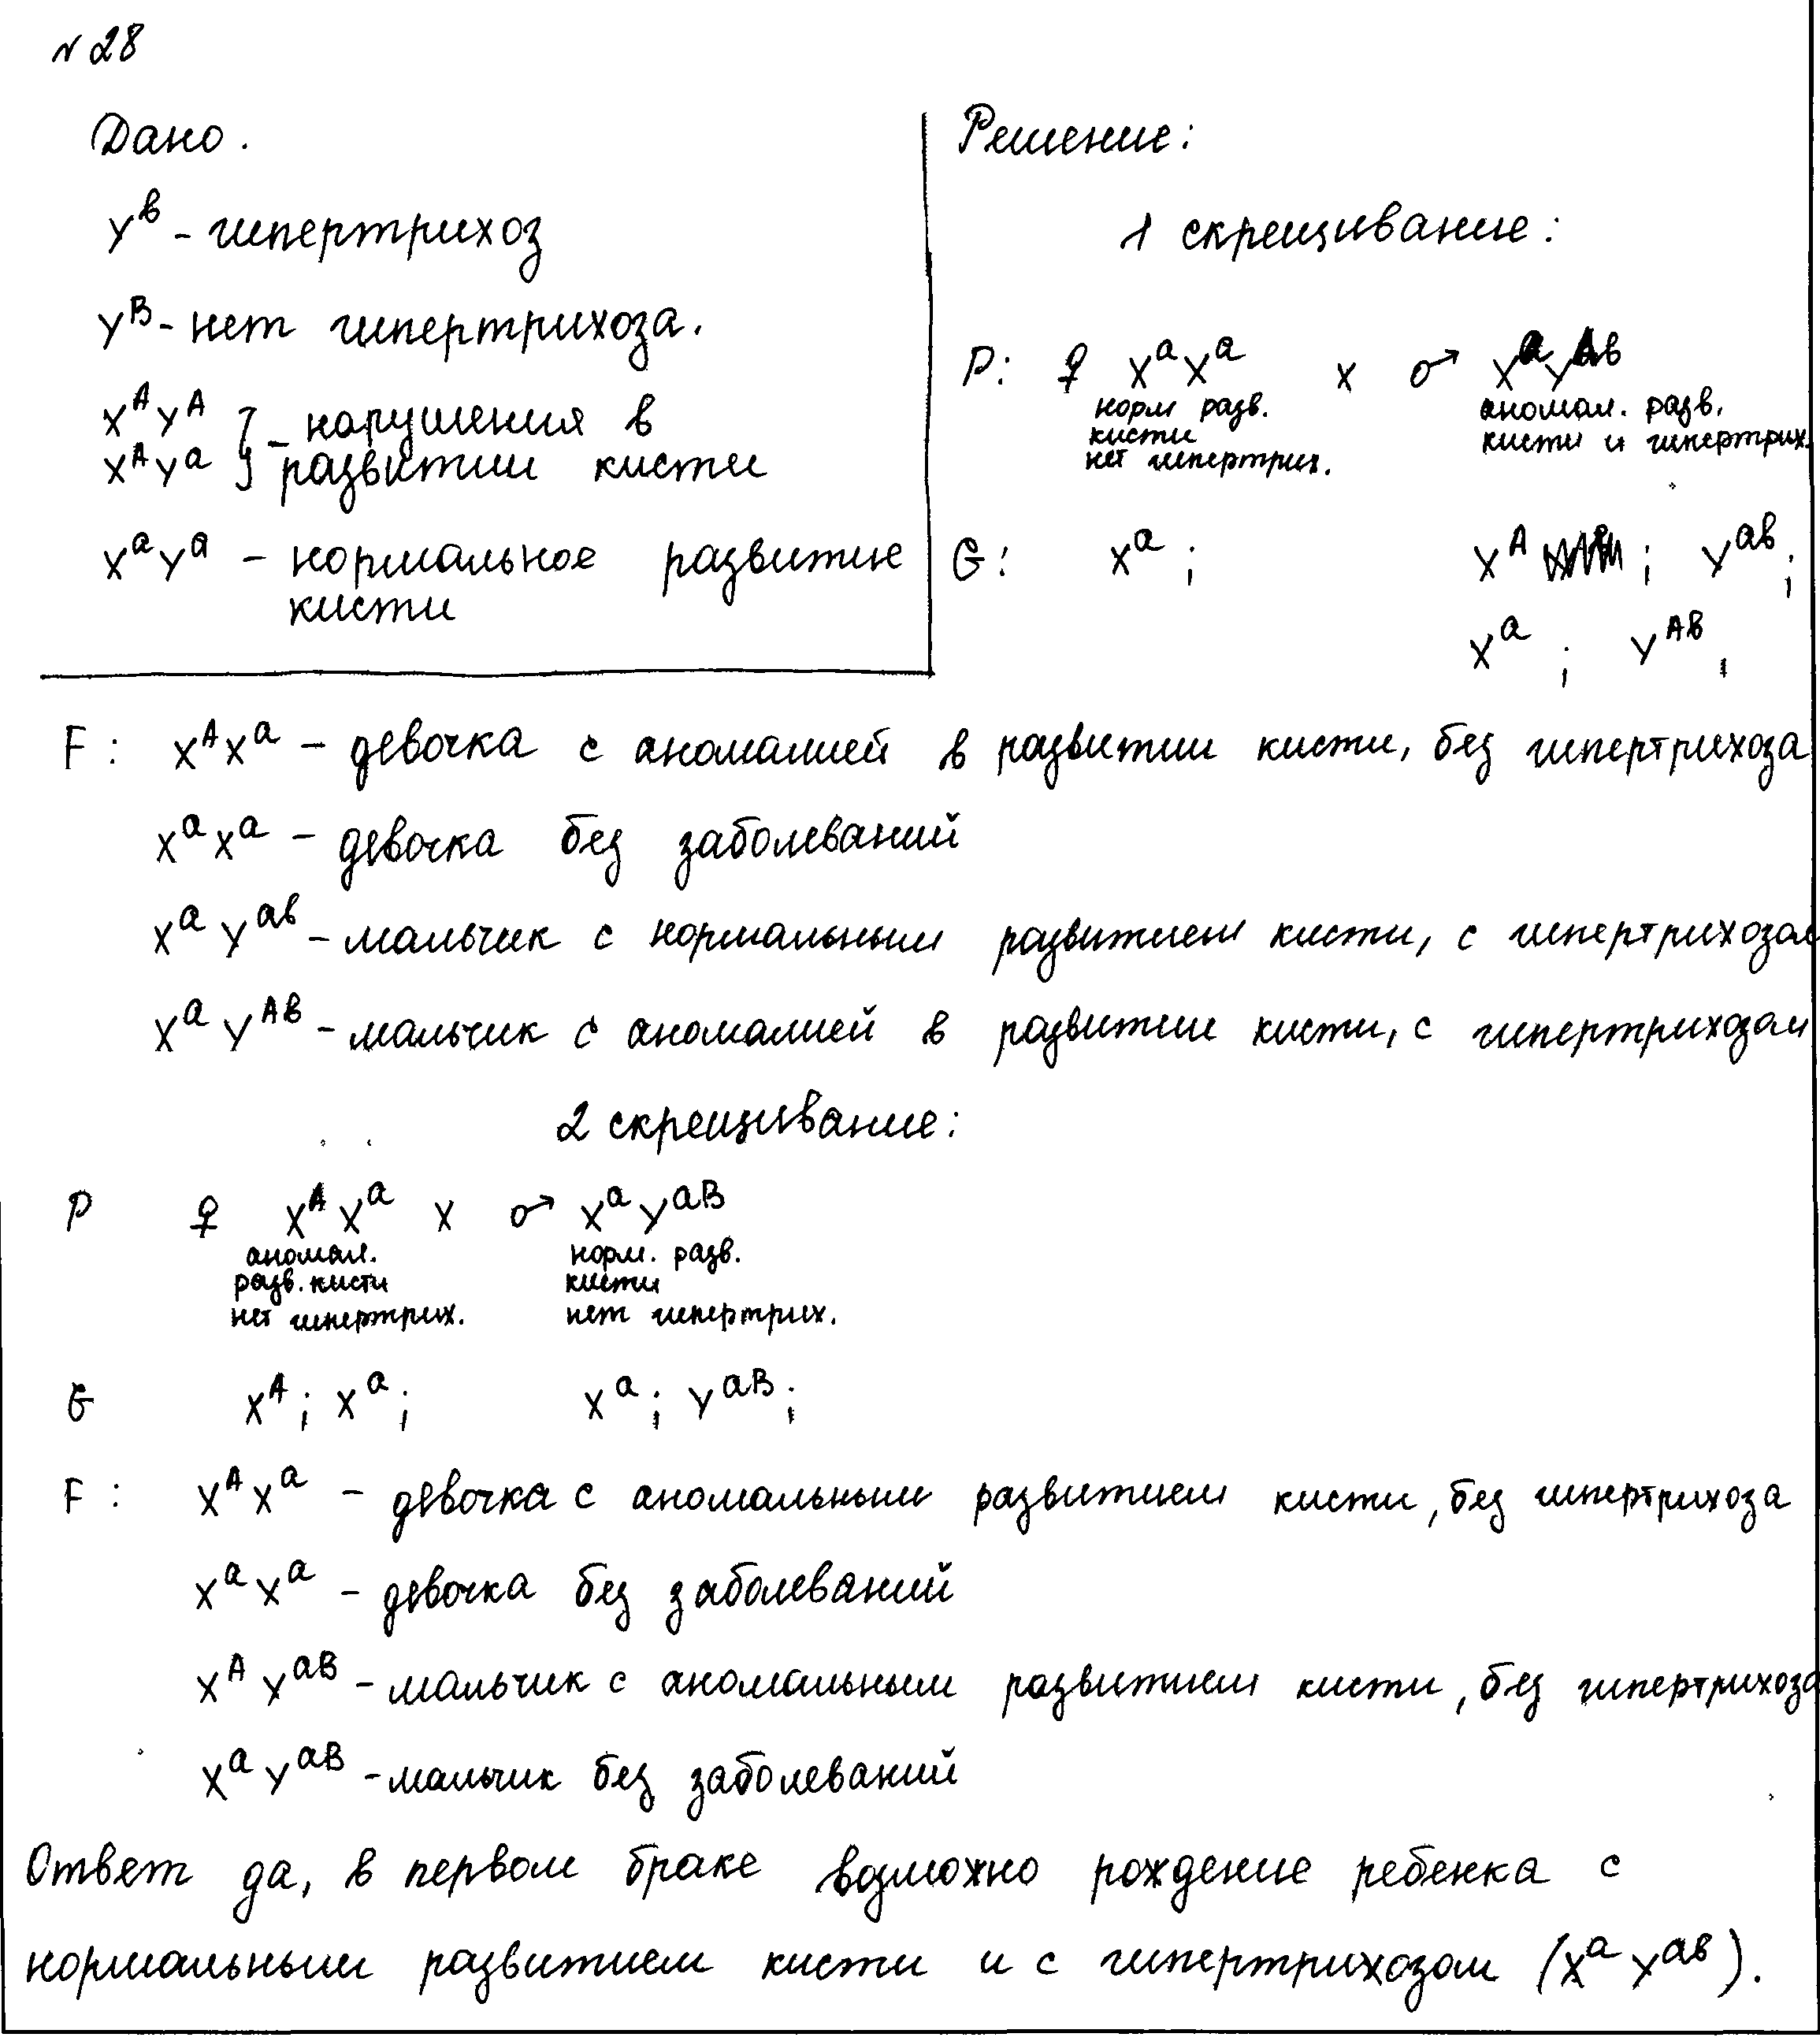 N 28
Дано.
Yᵇ - гипертрихоз
Yᴮ - нет гипертрихоза.
XᴬYᴬ } - нарушения в
XᴬYᵃ } развитии кисти
XᵃYᵃ - нормальное развитие
кисти
Решение:
1 скрещивание:
P: ♀ XᵃXᵃ x ♂ XᵃYᴬᵇ
норм разв. кисти нет гипертрих.
аномал. разв. кисти и гипертрих.
G: Xᵃ; Xᴬ; Yᵃᵇ;
Xᵃ; Yᴬᵇ;
F: XᴬXᵃ - девочка с аномалией в развитии кисти, без гипертрихоза
XᵃXᵃ - девочка без заболеваний
XᵃYᵃᵇ - мальчик с нормальным развитием кисти, с гипертрихозом
XᵃYᴬᵇ - мальчик с аномалией в развитии кисти, с гипертрихозом
2 скрещивание:
P ♀ XᴬXᵃ x ♂ XᵃYᵃᴮ
аномал. разв. кисти нет гипертрих.
норм. разв. кисти нет гипертрих.
G Xᴬ; Xᵃ; Xᵃ; Yᵃᴮ;
F: XᴬXᵃ - девочка с аномальным развитием кисти, без гипертрихоза
XᵃXᵃ - девочка без заболеваний
XᴬYᵃᴮ - мальчик с аномальным развитием кисти, без гипертрихоза
XᵃYᵃᴮ - мальчик без заболеваний
Ответ да, в первом браке возможно рождение ребенка с
нормальным развитием кисти и с гипертрихозом (XᵃYᵃᵇ).